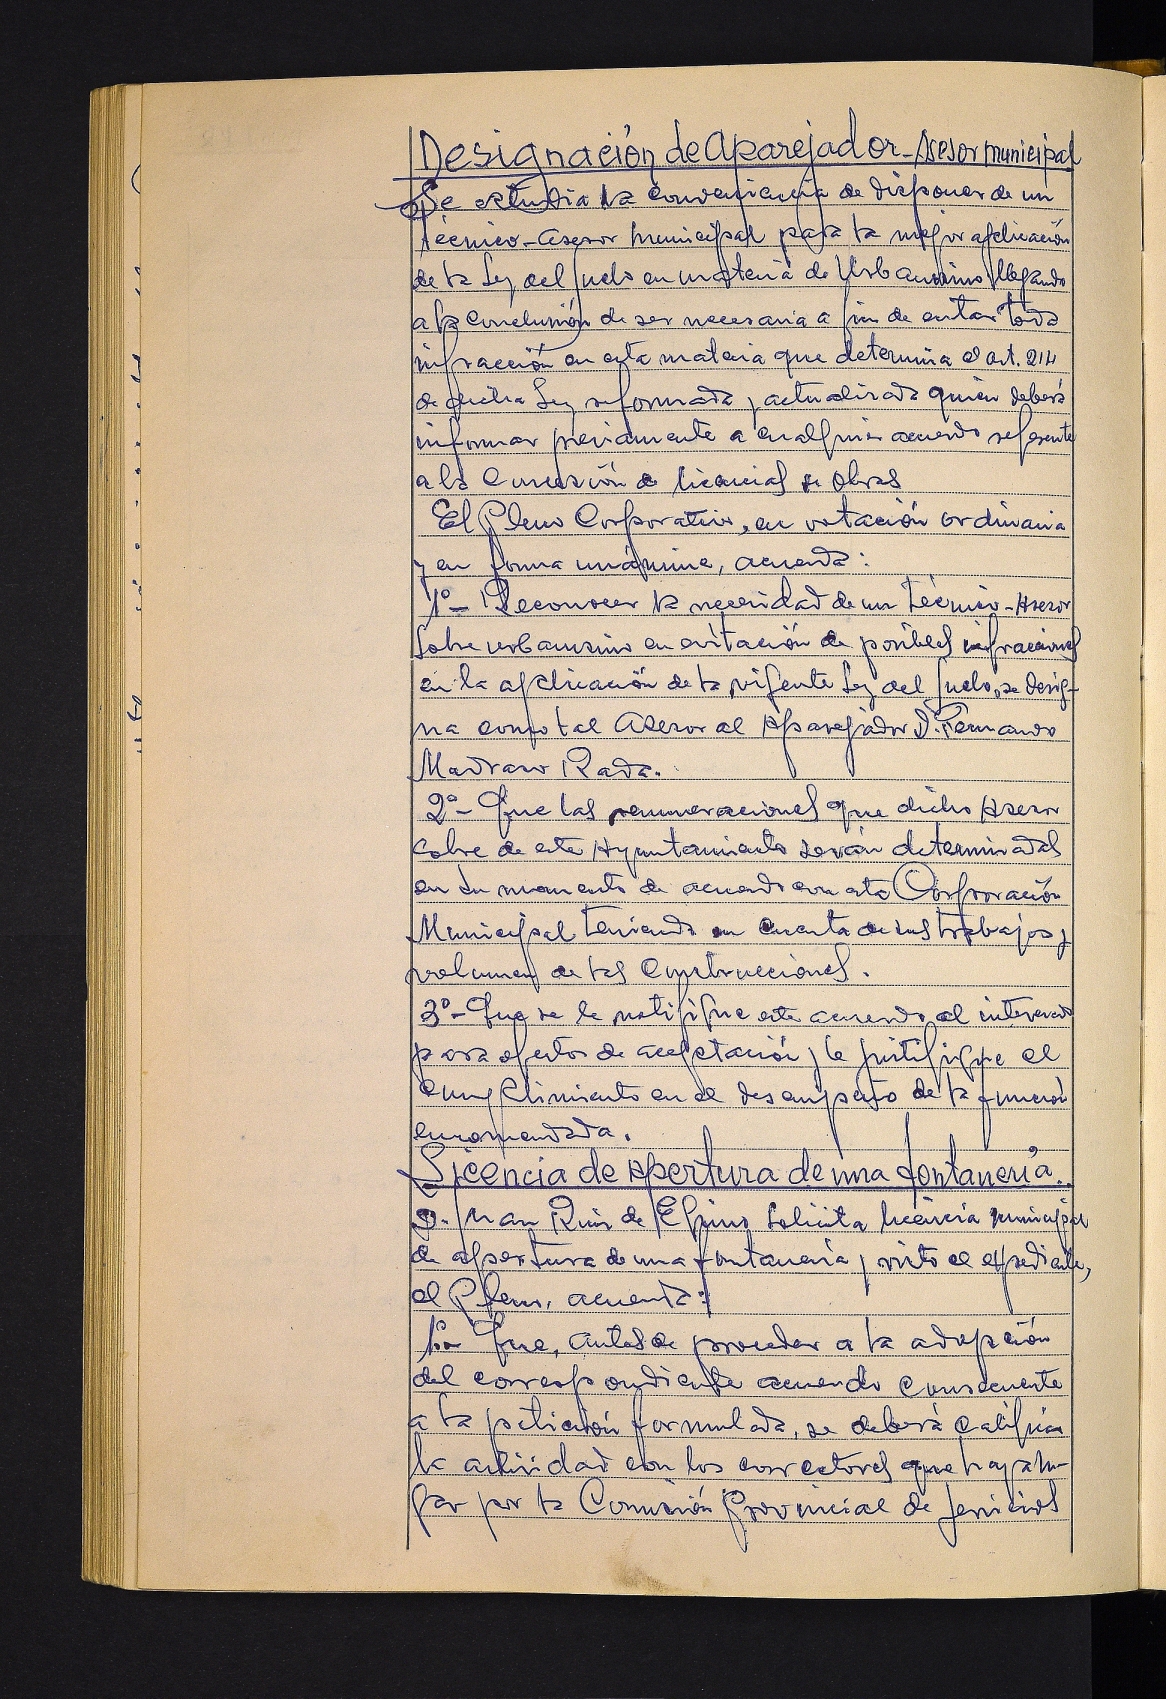 Designación de Aparejador-Asesor municipal
Se estudia la conveniencia de disponer de un
Técnico-Asesor Municipal para la mejor aplicación
de la Ley del Suelo en materia de Urbanismo llegando
a la conclusión de ser necesaria a fin de evitar toda
infracción en esta materia que determina el art. 214
de dicha Ley reformada y actualizada quien deberá
informar previamente a cualquier acuerdo referente
a la Concesión de licencias de Obras
El Pleno Corporativo, en votación ordinaria
y en forma unánime, acuerda:
1º- Reconocer la necesidad de un Técnico-Asesor
sobre urbanismo en evitación de posibles infracciones
en la aplicación de la vigente Ley del Suelo, se desig-
na como tal Asesor al Aparejador D. Fernando
Madrazo Rada.
2º- Que las remuneraciones que dicho Asesor
cobre de este Ayuntamiento serán determinadas
en su momento de acuerdo con esta Corporación
Municipal teniendo en cuenta de sus trabajos y
volumen de las Construcciones.
3º- Que se le notifique este acuerdo al interesado
para efectos de aceptación y le justifique el
cumplimiento en el desempeño de la función
encomendada.
Licencia de Apertura de una fontanería.
D. Juan Ruiz de Espino Solicita licencia municipal
de apertura de una fontanería y visto el expediente,
el Pleno, acuerda:
1º- Que, antes de proceder a la adopción
del correspondiente acuerdo consecuente
a la petición formulada, se deberá calificar
la actividad con los correctores que haya lu-
gar por la Comisión Provincial de Servicios